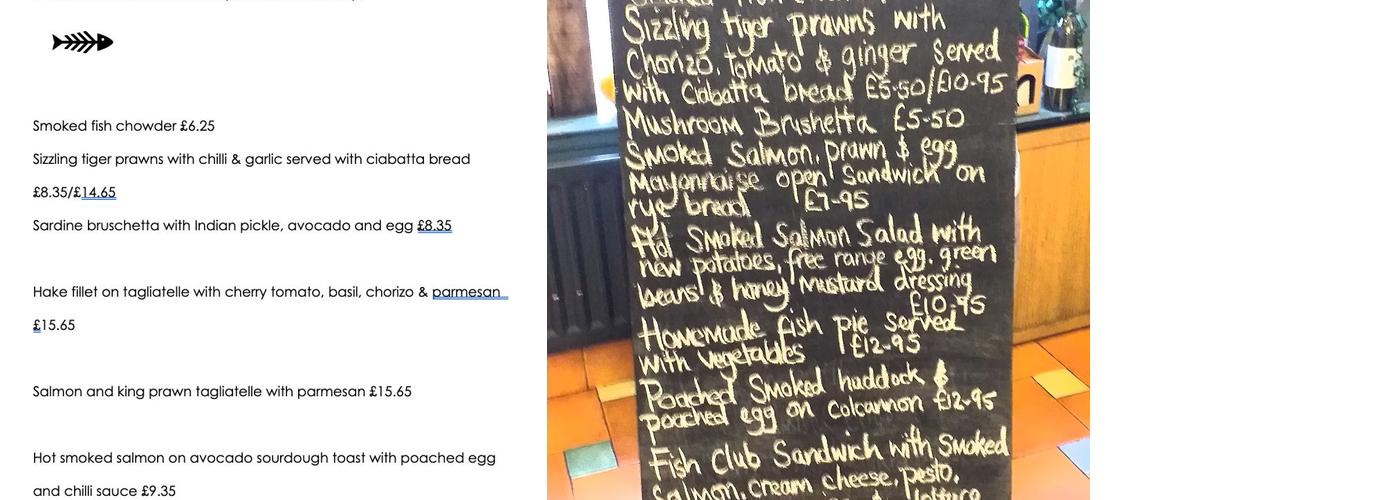 Smoked fish chowder £6.25
Sizzling tiger prawns with chilli & garlic served with ciabatta bread
£8.35/£14.65
Sardine bruschetta with Indian pickle, avocado and egg £8.35
Hake fillet on tagliatelle with cherry tomato, basil, chorizo & parmesan
£15.65
Salmon and king prawn tagliatelle with parmesan £15.65
Hot smoked salmon on avocado sourdough toast with poached egg
and chilli sauce £9.35
Sizzling tiger prawns with
Chorizo, tomato & ginger served
with Ciabatta bread £5-50/£10-95
Mushroom Brushetta £5-50
Smoked Salmon, prawn & egg
Mayonnaise open Sandwich on
rye bread £7-95
Hot Smoked Salmon Salad with
new potatoes, free range egg, green
beans & honey Mustard dressing
£10-95
Homemade fish pie served
with vegetables £12-95
Poached Smoked haddock &
poached egg on Colcannon £12-95
Fish Club Sandwich with Smoked
Salmon, cream cheese, pesto,
lettuce